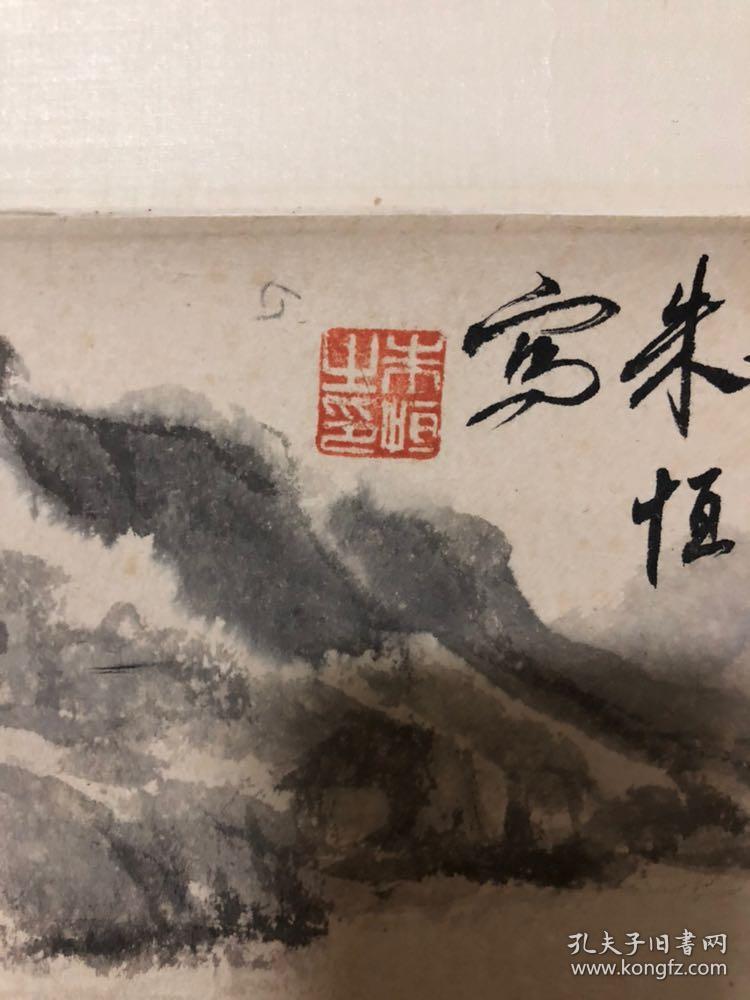 朱恒
寫
朱恒之印
孔夫子旧书网
www.kongfz.com